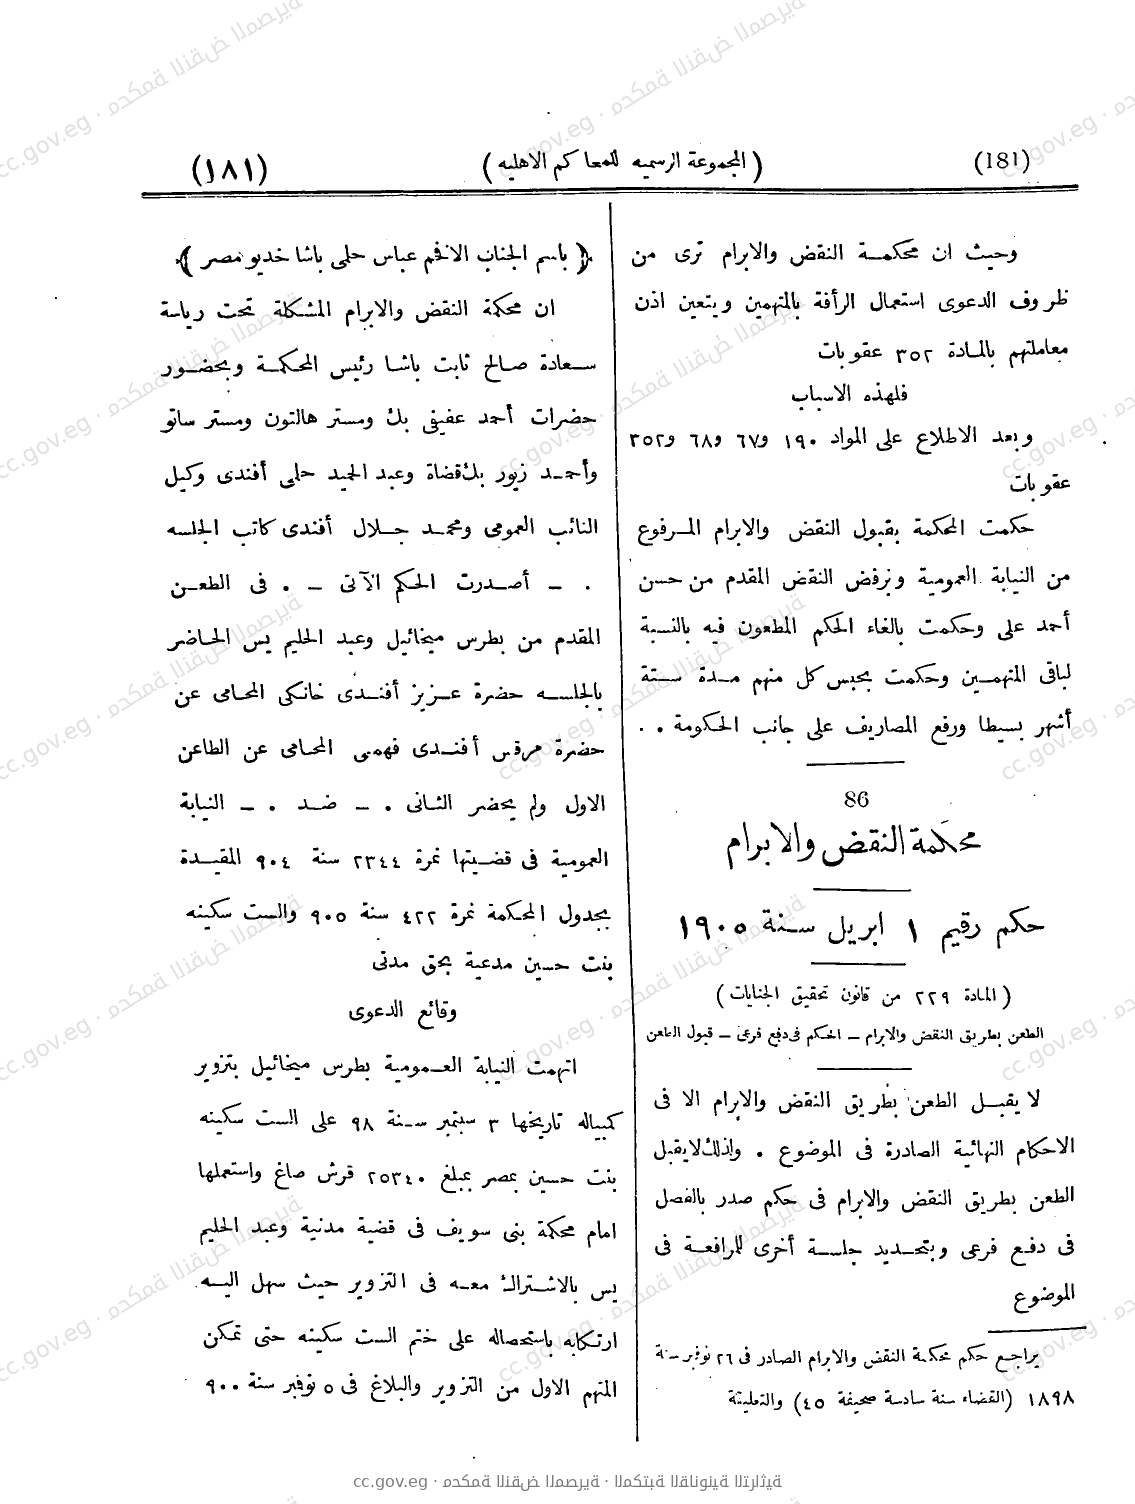 (181)
(المجموعة الرسميه للمحاكم الاهليه)
(١٨١)
وحيث ان محكمة النقض والابرام ترى من
ظروف الدعوى استعمال الرأفة بالمتهمين ويتعين اذن
معاملتهم بالمادة ٣٥٢ عقوبات
فلهذه الاسباب
وبعد الاطلاع على المواد ١٩٠ و٦٧ و٦٨ و٣٥٢
عقوبات
حكمت المحكمة بقبول النقض والابرام المرفوع
من النيابة العمومية وبرفض النقض المقدم من حسن
أحمد على وحكمت بالغاء الحكم المطعون فيه بالنسبة
لباقى المتهمين وحكمت بحبس كل منهم مدة ستة
أشهر بسيطا ورفع المصاريف على جانب الحكومة . .
86
محكمة النقض والابرام
حكم رقيم ١ ابريل سنة ١٩٠٥
(المادة ٢٢٩ من قانون تحقيق الجنايات)
الطعن بطريق النقض والابرام – الحكم فى دفع فرعى – قبول الطعن
لا يقبل الطعن بطريق النقض والابرام الا فى
الاحكام النهائية الصادرة فى الموضوع . ولذلك لا يقبل
الطعن بطريق النقض والابرام فى حكم صدر بالفصل
فى دفع فرعى وبتحديد جلسة أخرى للمرافعة فى
الموضوع
يراجع حكم محكمة النقض والابرام الصادر فى ٢٦ نوفمبر سنة
١٨٩٨ (القضاء سنة سادسة صحيفة ٤٥) والتعليقة
﴿ باسم الجناب الافخم عباس حلمى باشا خديو مصر ﴾
ان محكمة النقض والابرام المشكلة تحت رياسة
سعادة صالح ثابت باشا رئيس المحكمة وبحضور
حضرات أحمد عفيفى بك ومستر هالتون ومستر ساتو
وأحمد زيور بك قضاة وعبد المجيد حلمى أفندى وكيل
النائب العمومى ومحمد جلال أفندى كاتب الجلسه
. – أصدرت الحكم الآتى – . فى الطعن
المقدم من بطرس ميخائيل وعبد الحليم يس الحاضر
بالجلسه حضرة عزيز أفندى خانكى المحامى عن
حضرة مرقس أفندى فهمى المحامى عن الطاعن
الاول ولم يحضر الثانى . – ضد . – النيابة
العمومية فى قضيتها نمرة ٢٣٤٤ سنة ٩٠٤ المقيدة
بجدول المحكمة نمرة ٤٢٢ سنة ٩٠٥ والست سكينه
بنت حسين مدعية بحق مدنى
وقائع الدعوى
اتهمت النيابة العمومية بطرس ميخائيل بتزوير
كمبياله تاريخها ٣ سبتمبر سنة ٩٨ على الست سكينه
بنت حسين بمصر بمبلغ ٢٥٣٤٠ قرش صاغ واستعملها
امام محكمة بنى سويف فى قضية مدنية وعبد الحليم
يس بالاشتراك معه فى التزوير حيث سهل اليه
ارتكابه باستحصاله على ختم الست سكينه حتى تمكن
المتهم الاول من التزوير والبلاغ فى ٥ نوفمبر سنة ٩٠٠
cc.gov.eg · محكمة النقض المصرية · المكتبة القانونية التراثية